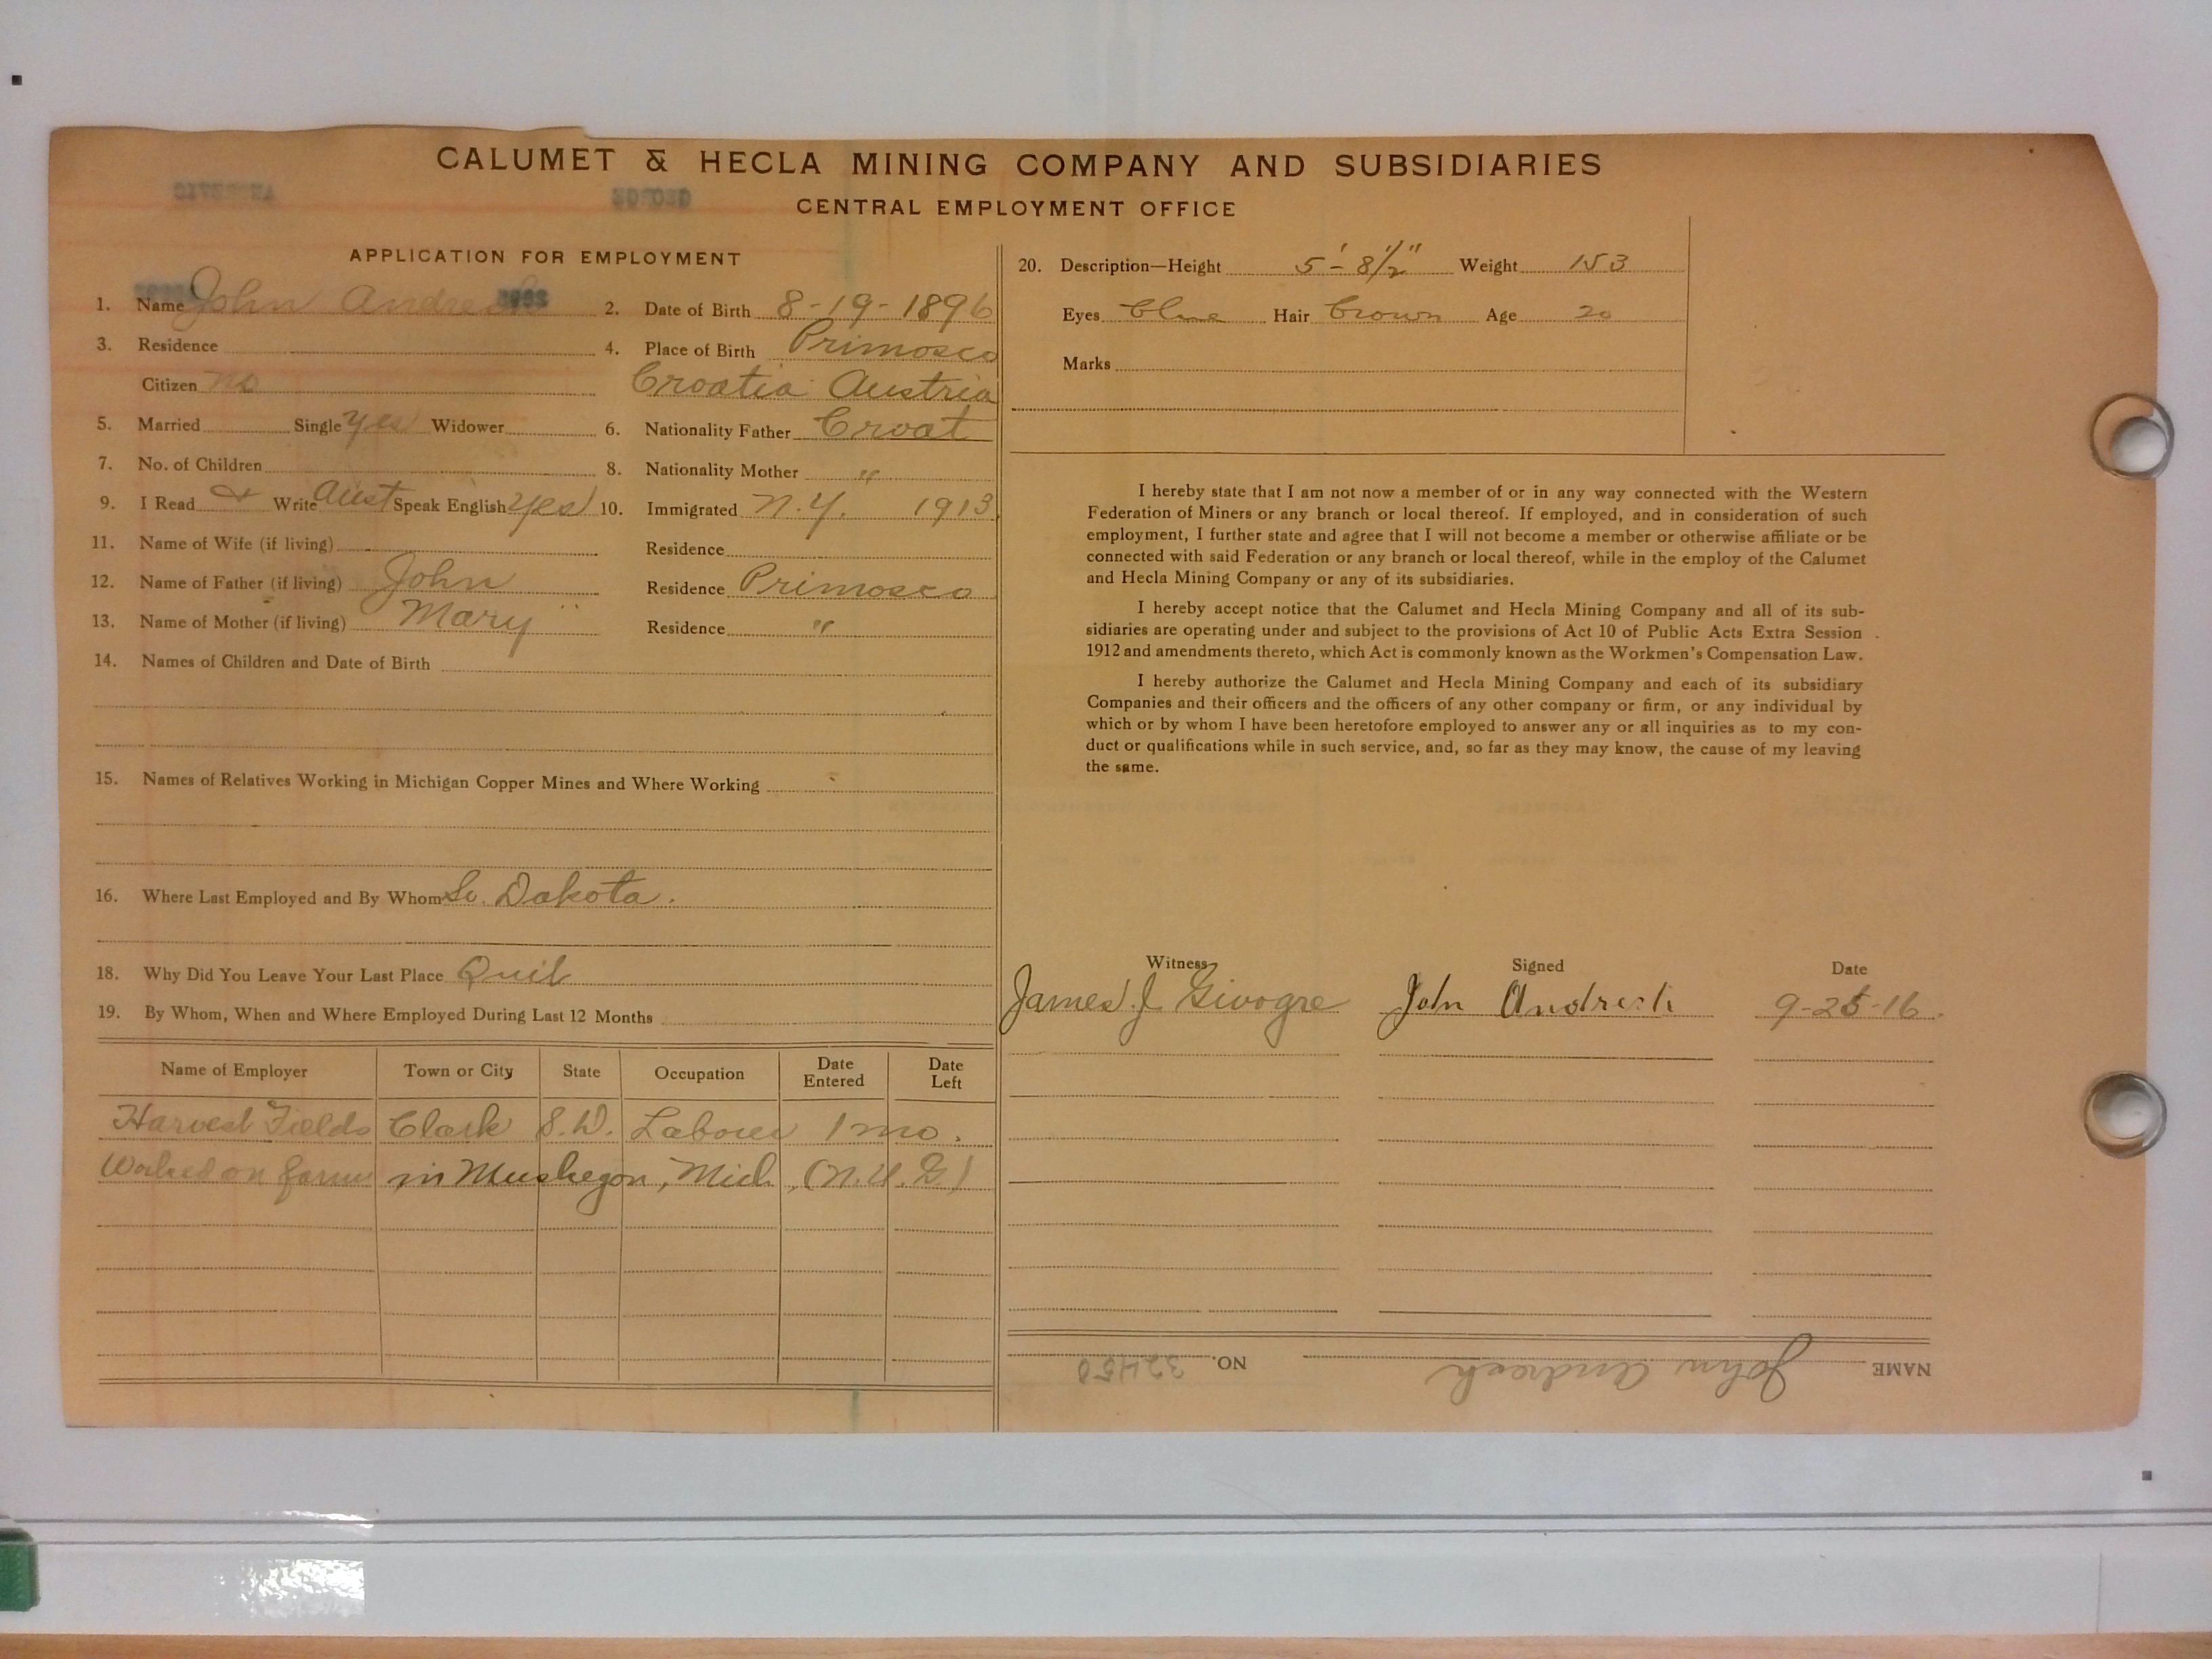 CALUMET & HECLA MINING COMPANY AND SUBSIDIARIES
CENTRAL EMPLOYMENT OFFICE
APPLICATION FOR EMPLOYMENT
1. Name John 2. Date of Birth 8-19-1896
3. Residence 4. Place of Birth Primosco
Citizen no Croatia Austria
5. Married Single yes Widower 6. Nationality Father Croat
7. No. of Children 8. Nationality Mother "
9. I Read & Write Aust Speak English yes 10. Immigrated N.Y. 1913
11. Name of Wife (if living) Residence
12. Name of Father (if living) John Residence Primosco
13. Name of Mother (if living) Mary Residence "
14. Names of Children and Date of Birth
15. Names of Relatives Working in Michigan Copper Mines and Where Working
16. Where Last Employed and By Whom So. Dakota.
18. Why Did You Leave Your Last Place Quit
19. By Whom, When and Where Employed During Last 12 Months
Name of Employer Town or City State Occupation Date Entered Date Left
Harvest Fields Clark S.D. Laborer 1 mo.
Worked on farm in Muskegon, Mich. (N.U.G.)
20. Description—Height 5'-8½" Weight 153
Eyes blue Hair brown Age 20
Marks
I hereby state that I am not now a member of or in any way connected with the Western
Federation of Miners or any branch or local thereof. If employed, and in consideration of such
employment, I further state and agree that I will not become a member or otherwise affiliate or be
connected with said Federation or any branch or local thereof, while in the employ of the Calumet
and Hecla Mining Company or any of its subsidiaries.
I hereby accept notice that the Calumet and Hecla Mining Company and all of its sub-
sidiaries are operating under and subject to the provisions of Act 10 of Public Acts Extra Session
1912 and amendments thereto, which Act is commonly known as the Workmen's Compensation Law.
I hereby authorize the Calumet and Hecla Mining Company and each of its subsidiary
Companies and their officers and the officers of any other company or firm, or any individual by
which or by whom I have been heretofore employed to answer any or all inquiries as to my con-
duct or qualifications while in such service, and, so far as they may know, the cause of my leaving
the same.
Witness Signed Date
James J. Givogre John 9-25-16
NAME John Andresh NO. 32450